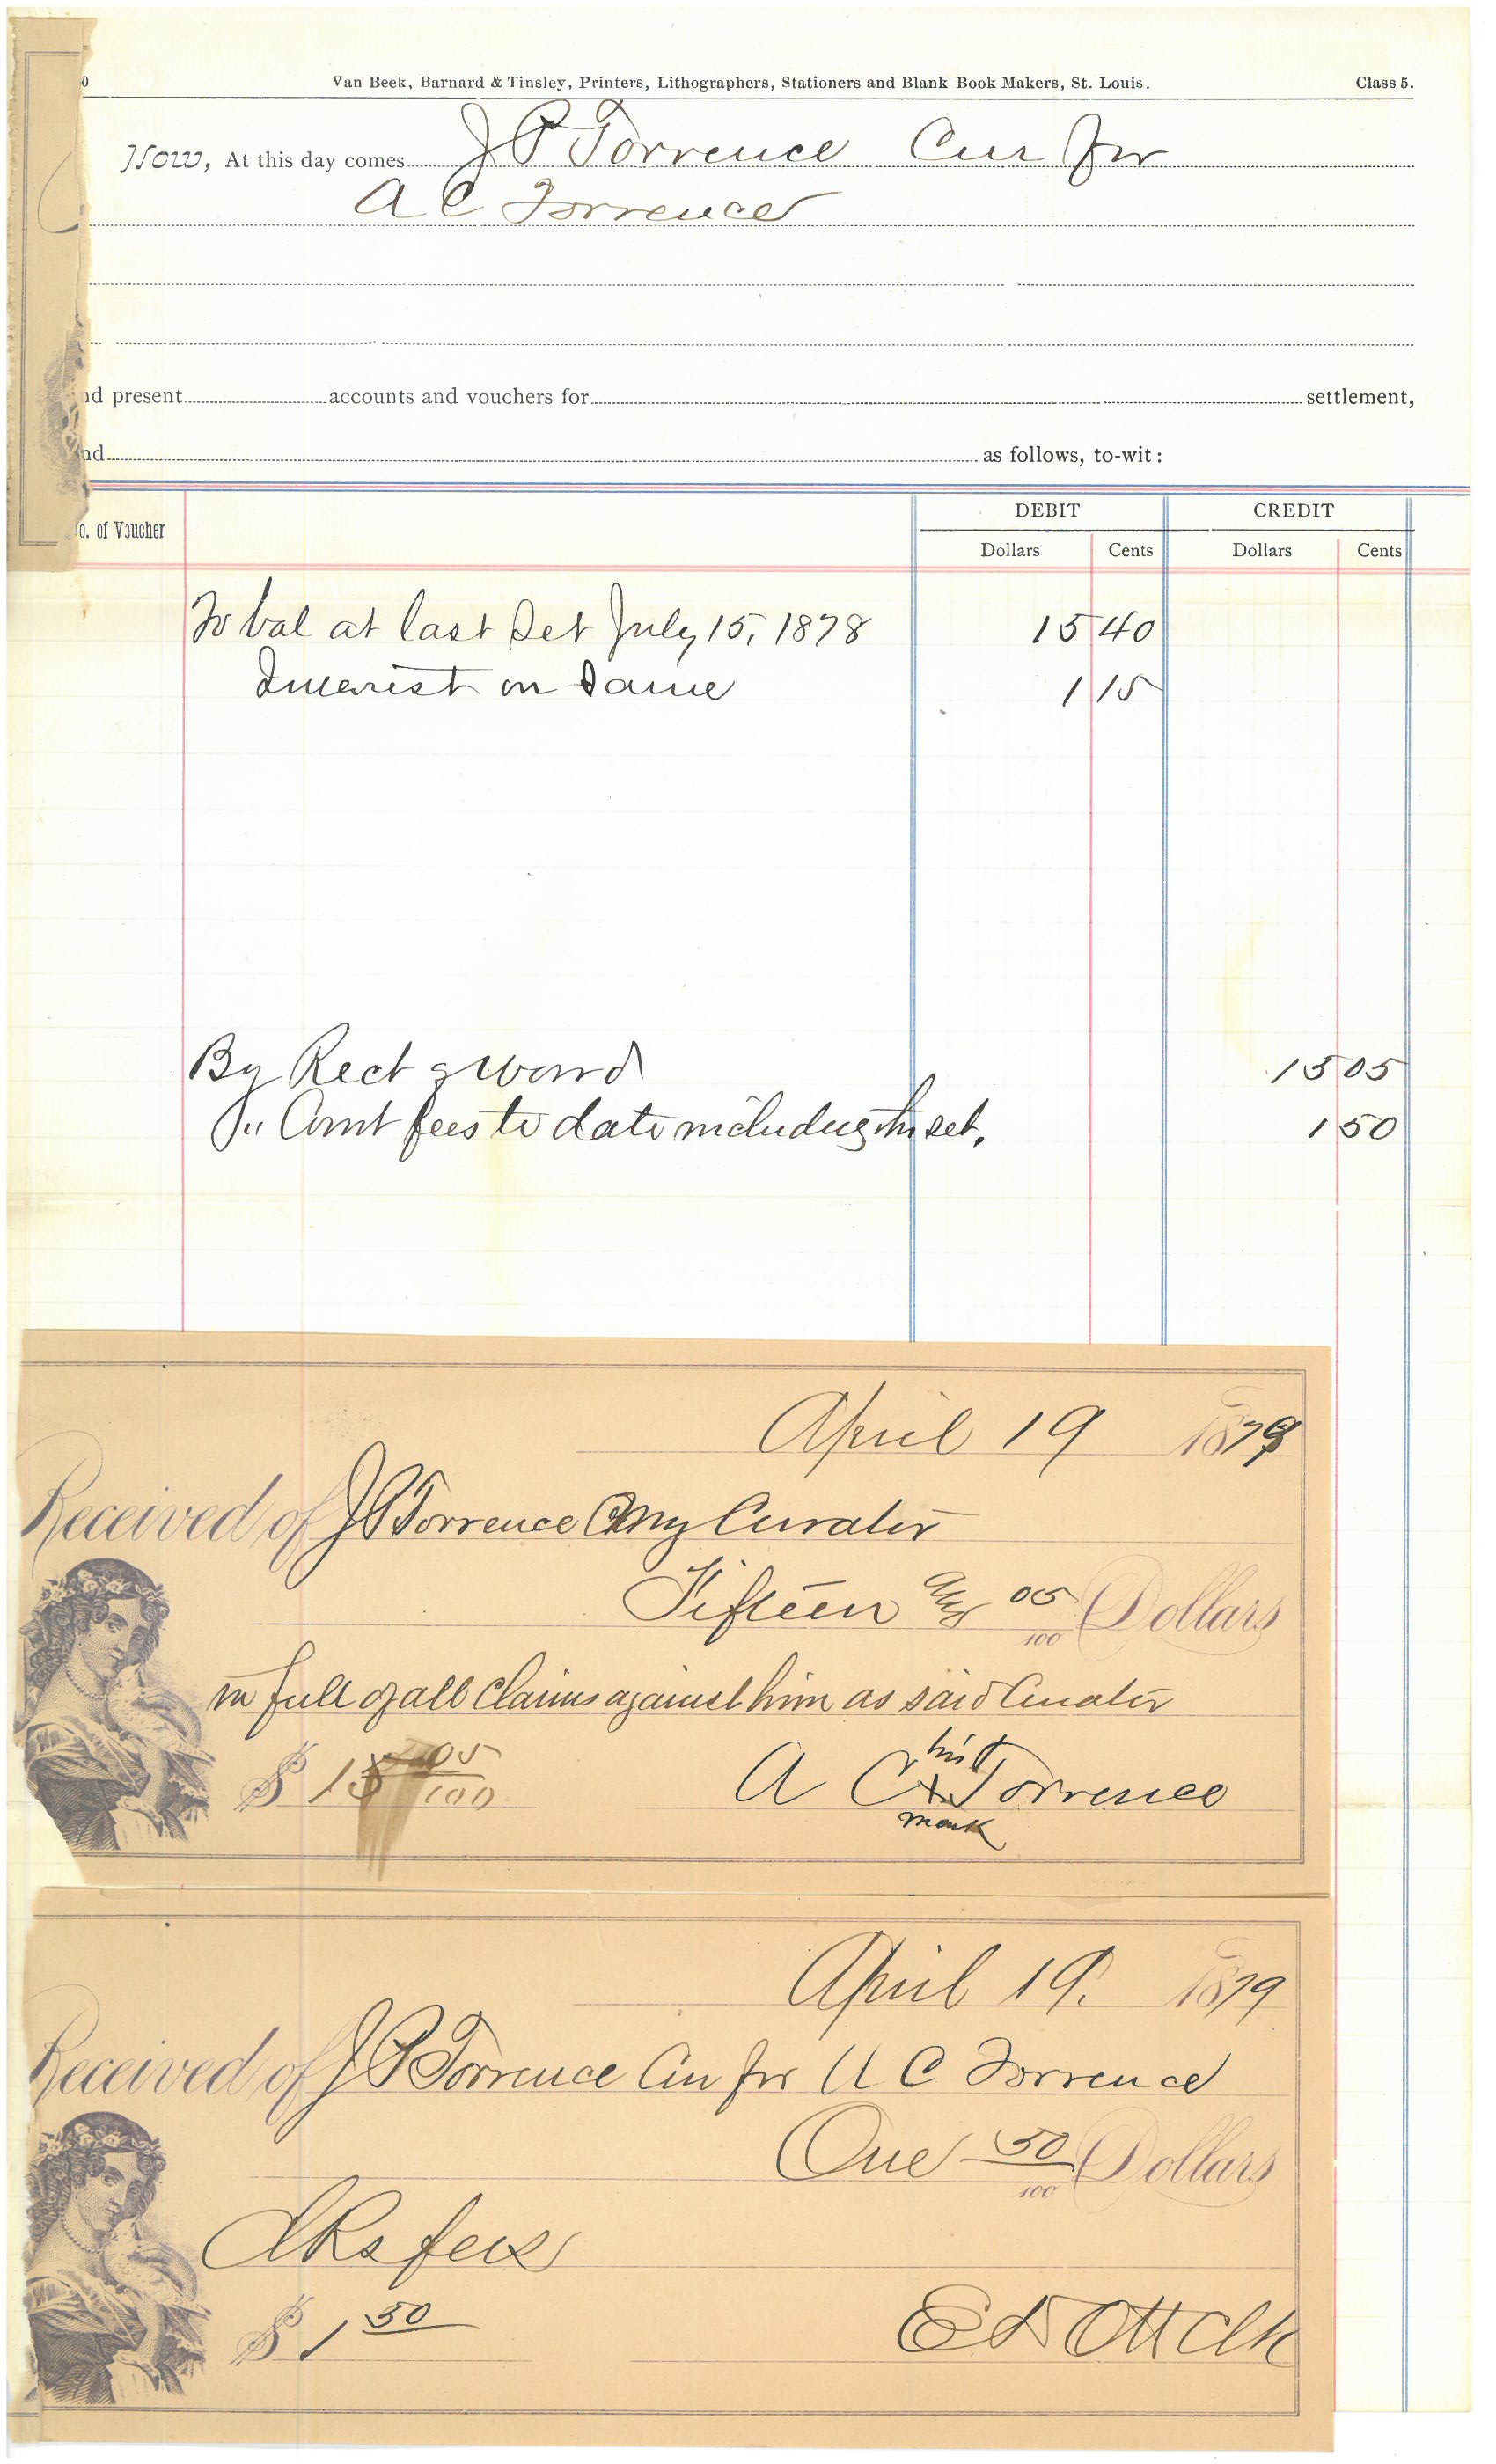 0 Van Beek, Barnard & Tinsley, Printers, Lithographers, Stationers and Blank Book Makers, St. Louis. Class 5.
Now, At this day comes J P Torrence Cur for
A C Torrence
nd present accounts and vouchers for settlement,
nd as follows, to-wit:
o. of Voucher DEBIT CREDIT
Dollars Cents Dollars Cents
To bal at last Set July 15, 1878 15 40
Interest on Same 1 15
By Rect of Ward 15 05
" Court fees to date including this set. 1 50
April 19 1879
Received of J P Torrence my Curator
Fifteen and 05/100 Dollars
in full of all claims against him as said Curator
$ 15 05/100 A C his x mark Torrence
April 19. 1879
Received of J P Torrence Cur for A C Torrence
One 50/100 Dollars
Clks fees
$ 1 50 E D Ott Clk